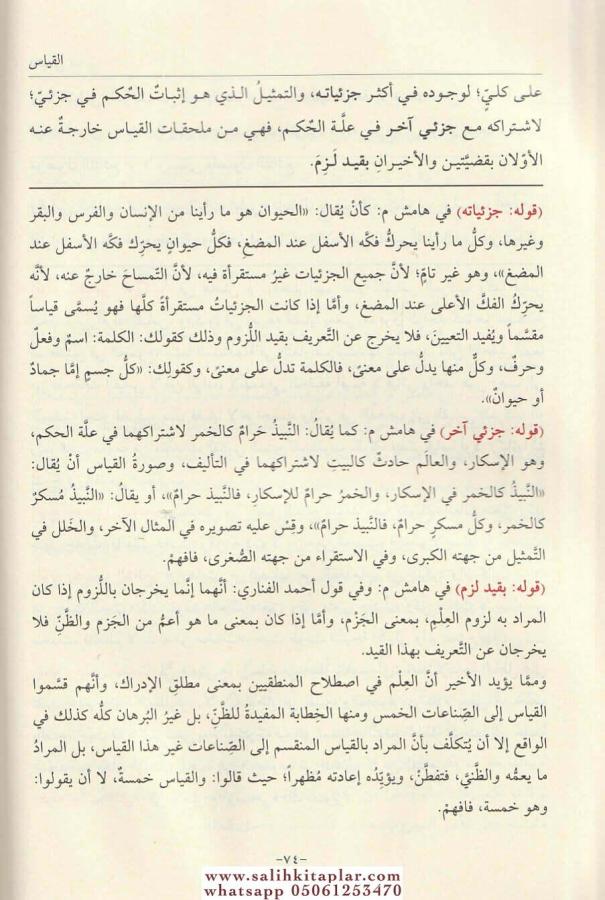 القياس
على كليٍّ؛ لوجوده في أكثر جزئياته، والتمثيلُ الذي هو إثباتُ الحُكم في جزئيّ؛
لاشتراكه مع جزئي آخر في علّة الحُكم، فهي من ملحقات القياس خارجةٌ عنه
الأوّلان بقضيّتين والأخيرانِ بقيد لَزِمَ.
(قوله: جزئياته) في هامش م: كأنْ يُقال: «الحيوان هو ما رأينا من الإنسان والفرس والبقر
وغيرها، وكلُّ ما رأينا يحركُ فكَّه الأسفل عند المضغِ، فكلُّ حيوانٍ يحرّك فكَّه الأسفل عند
المضغ»، وهو غير تامٍّ؛ لأنَّ جميع الجزئيات غيرُ مستقرأة فيه، لأنَّ التّمساحَ خارجٌ عنه، لأنَّه
يحرّكُ الفكَّ الأعلى عند المضغ، وأمَّا إذا كانت الجزئياتُ مستقرأةً كلَّها فهو يُسمَّى قياساً
مقسَّماً ويُفيد التعيينَ، فلا يخرج عن التَّعريف بقيد اللُّزوم وذلك كقولك: الكلمة: اسمٌ وفعلٌ
وحرفٌ، وكلٌّ منها يدلُّ على معنىً، فالكلمة تدلُّ على معنىً، وكقولِك: «كلُّ جسمٍ إمَّا جمادٌ
أو حيوانٌ».
(قوله: جزئي آخر) في هامش م: كما يُقالُ: النَّبيذُ حَرامٌ كالخمر لاشتراكهما في علّة الحكم،
وهو الإسكار، والعالَم حادثٌ كالبيتِ لاشتراكهما في التأليف، وصورةُ القياس أنْ يُقال:
«النَّبيذُ كالخمر في الإسكار، والخمرُ حرامٌ للإسكارِ، فالنَّبيذ حرامٌ»، أو يقالُ: «النَّبيذ مُسكرٌ
كالخمر، وكلُّ مسكرٍ حرامٌ، فالنَّبيذ حرامٌ»، وقِسْ عليه تصويره في المثال الآخر، والخَلل في
التَّمثيل من جهته الكبرى، وفي الاستقراء من جهته الصُّغرى، فافهمْ.
(قوله: بقيد لزم) في هامش م: وفي قول أحمد الفناري: أنَّهما إنَّما يخرجان باللُّزوم إذا كان
المراد به لزوم العِلْمِ، بمعنى الجَزْم، وأمَّا إذا كان بمعنى ما هو أعمُّ من الجَزم والظَّنِّ فلا
يخرجان عن التَّعريف بهذا القيد.
وممَّا يؤيد الأخير أنَّ العِلْمَ في اصطلاح المنطقيين بمعنى مطلقِ الإدراك، وأنَّهم قسَّموا
القياس إلى الصِّناعات الخمس ومنها الخِطابة المفيدةُ للظَّنِّ، بل غيرُ البُرهان كلُّه كذلك في
الواقع إلا أن يُتكلَّف بأنَّ المراد بالقياس المنقسم إلى الصِّناعات غير هذا القياس، بل المرادُ
ما يعمُّه والظَّنيَّ، فتفطَّنْ، ويؤيِّدُه إعادته مُظهراً؛ حيث قالوا: والقياس خمسةٌ، لا أن يقولوا:
وهو خمسة، فافهمْ.
-٧٤-
www.salihkitaplar.com
whatsapp 05061253470